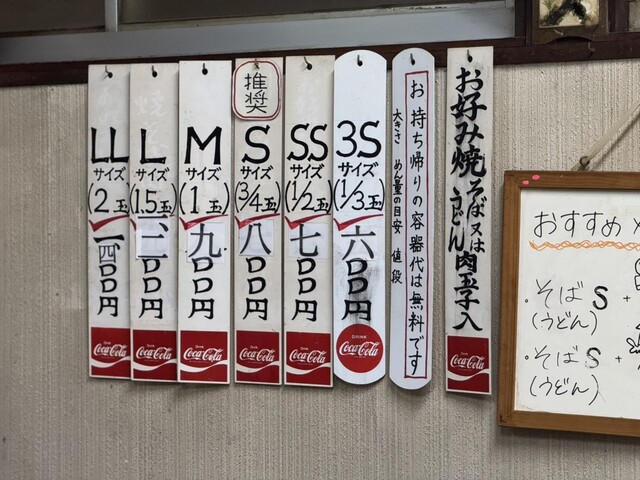 お好み焼
そば又は
うどん
肉玉子入
Coca-Cola
お持ち帰りの容器代は無料です
大きさ めん量の目安 値段
3S
サイズ
(1/3玉)
六〇〇円
Coca-Cola
SS
サイズ
(1/2玉)
七〇〇円
Coca-Cola
推奨
S
サイズ
(3/4玉)
八〇〇円
Coca-Cola
M
サイズ
(1玉)
九〇〇円
Coca-Cola
L
サイズ
(1.5玉)
〇〇円
Coca-Cola
LL
サイズ
(2玉)
一、四〇〇円
Coca-Cola
おすすめ
・そばS +
(うどん)
・そばS +
(うどん)